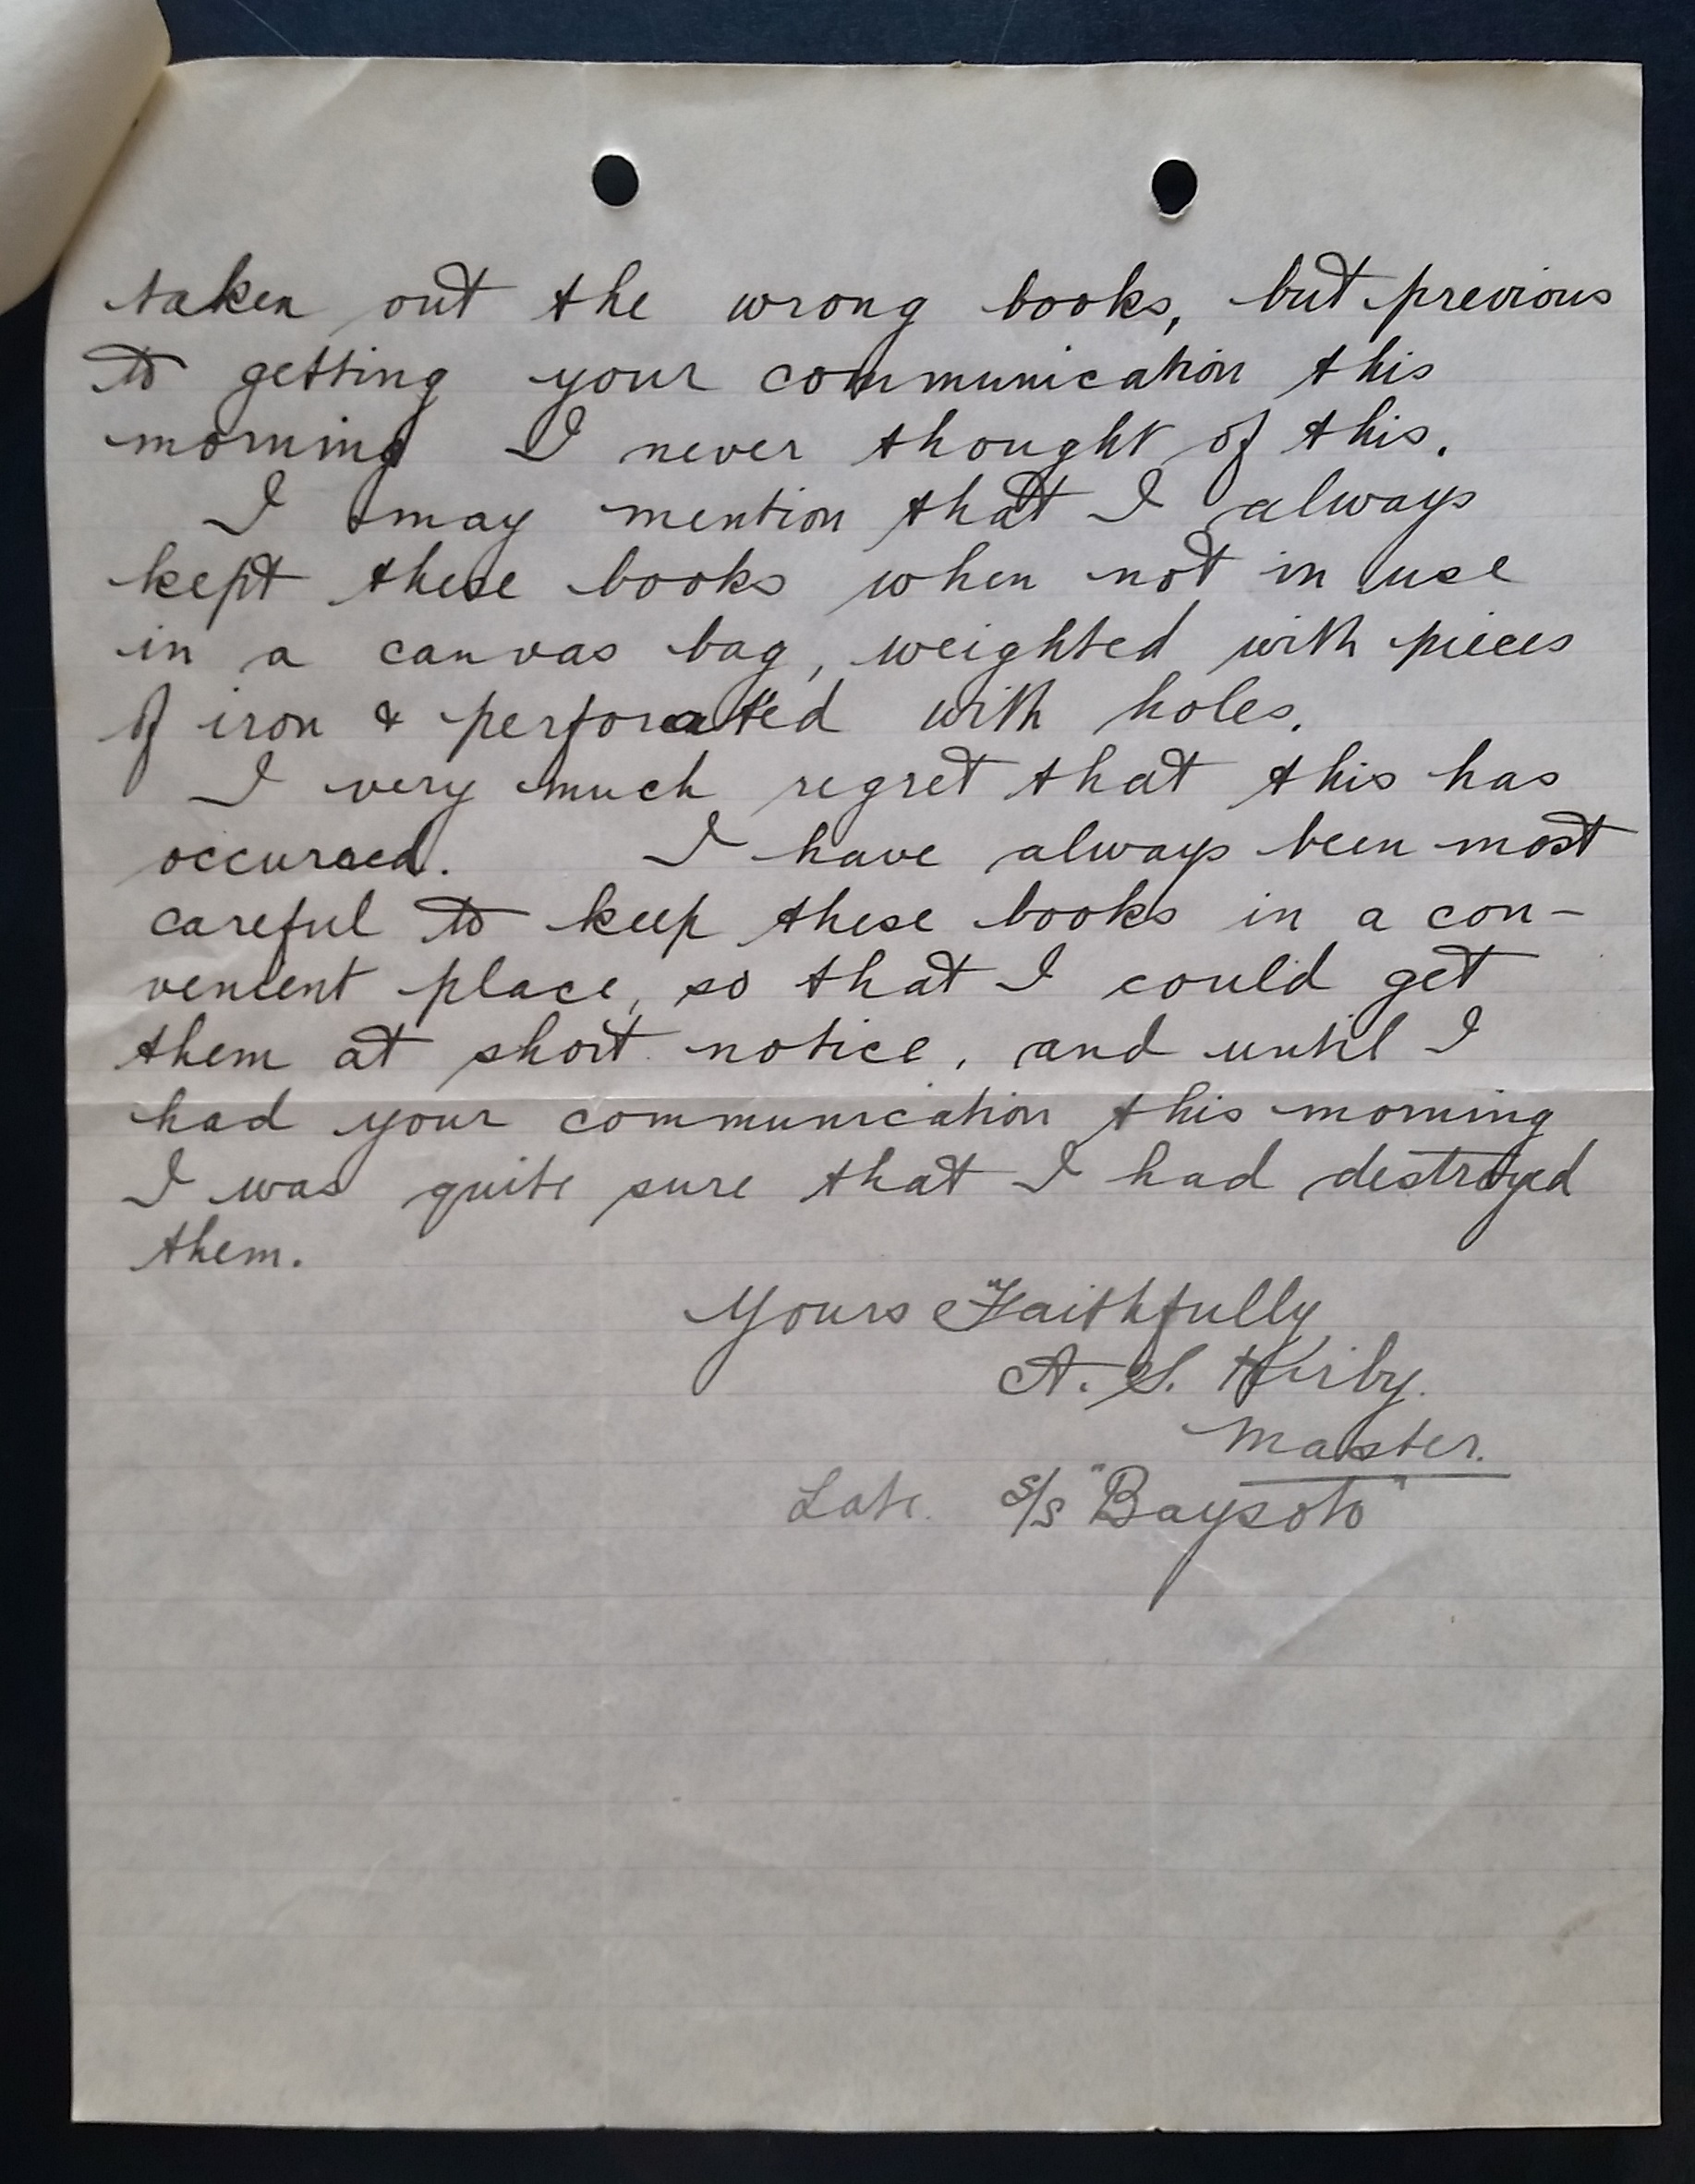 taken out the wrong books, but previous
to getting your communication this
morning I never thought of this.
I may mention that I always
kept these books when not in use
in a canvas bag, weighted with pieces
of iron & perforated with holes.
I very much regret that this has
occurred. I have always been most
careful to keep these books in a con-
venient place, so that I could get
them at short notice, and until I
had your communication this morning
I was quite sure that I had destroyed
them.
Yours Faithfully
A. S. Kirby.
Master.
Late. S/S "Baysoto"